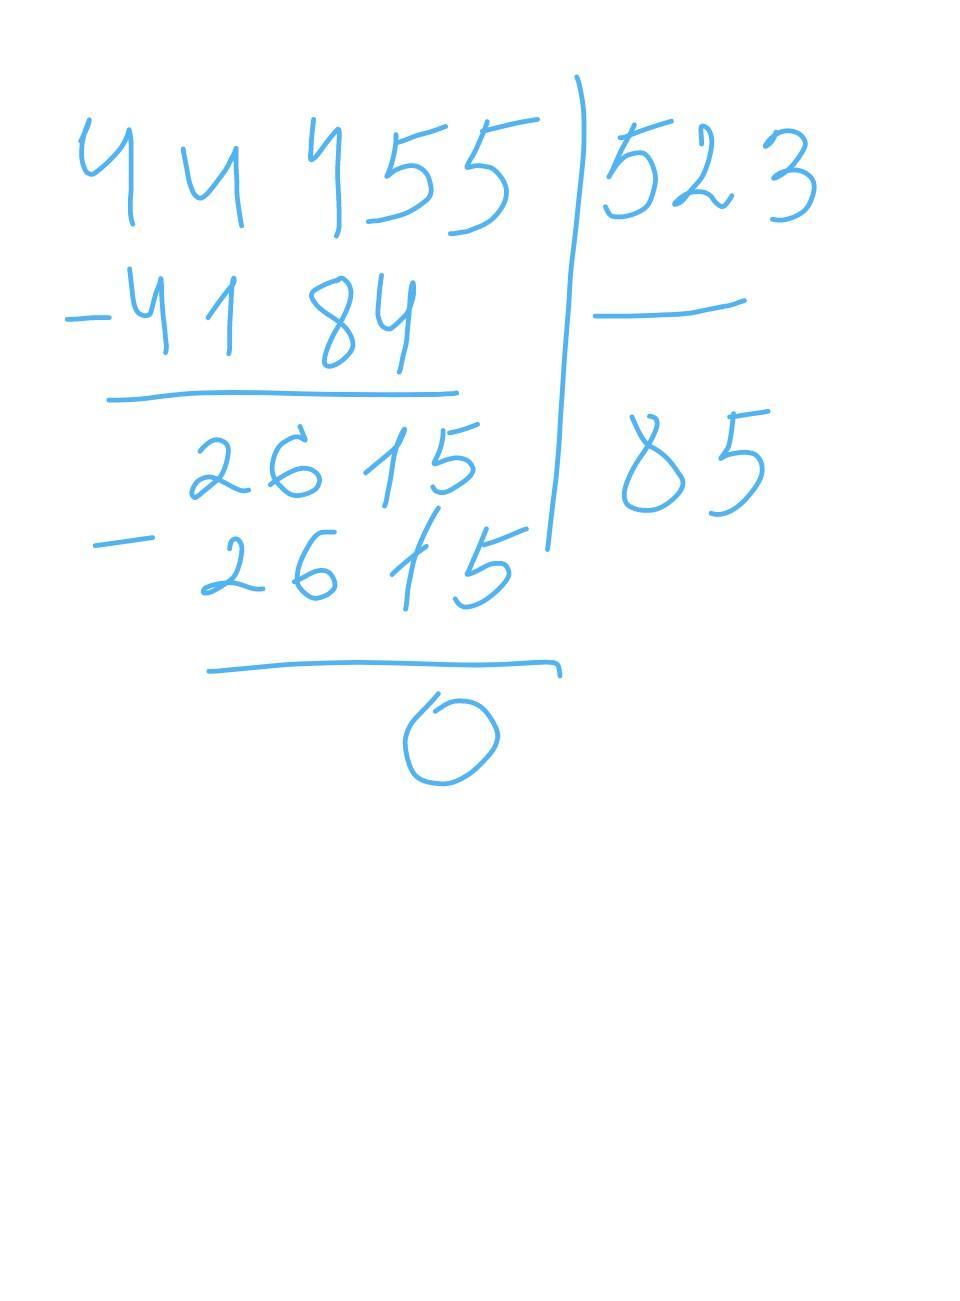 44455 523
-4184
2615 85
- 2615
0